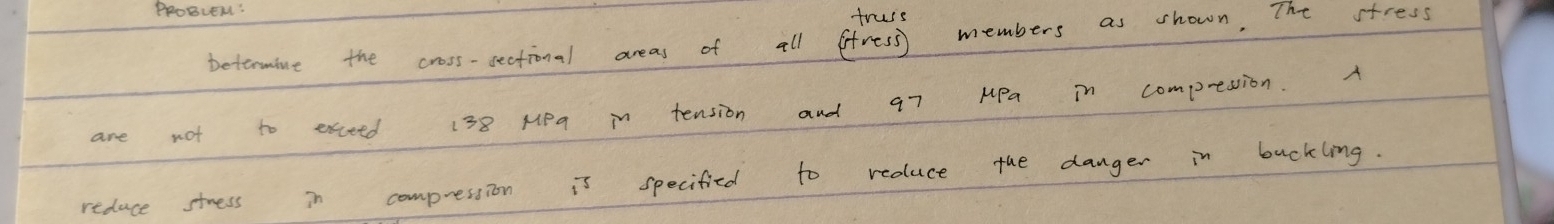 PROBLEM:
truss
Determine the cross-sectional areas of all (stress) members as shown. The stress
are not to exceed 138 MPa in tension and 97 MPa in compression. A
reduce stress in compression is specified to reduce the danger in buckling.